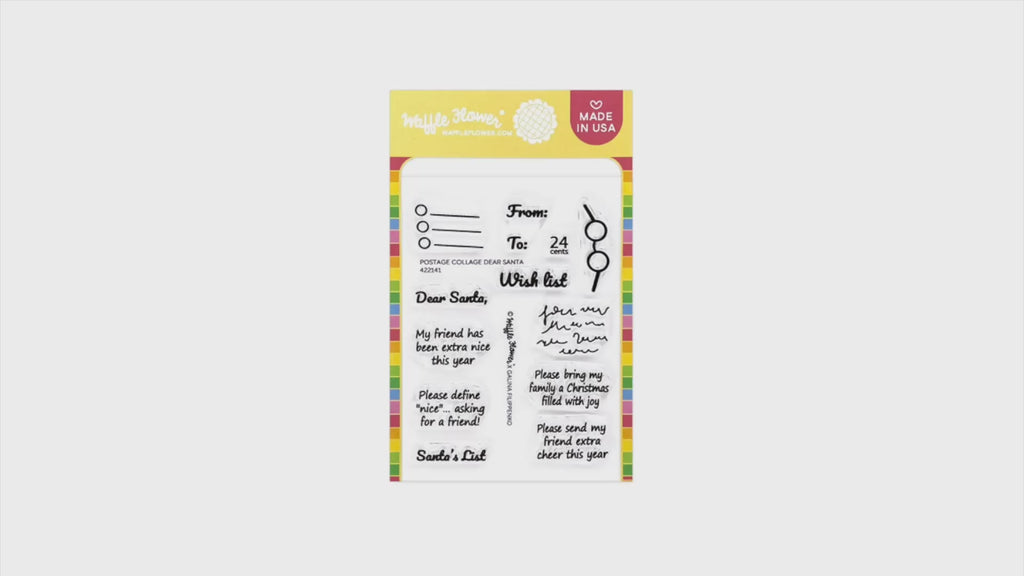 Waffle Flower®
WAFFLEFLOWER.COM
MADE
IN USA
From:
To:
24
cents
POSTAGE COLLAGE DEAR SANTA
422141
Wish list
Dear Santa,
My friend has
been extra nice
this year
Please define
"nice"... asking
for a friend!
Santa's List
© Waffle Flower® X GALINA FILIPPENKO
Please bring my
family a Christmas
filled with joy
Please send my
friend extra
cheer this year